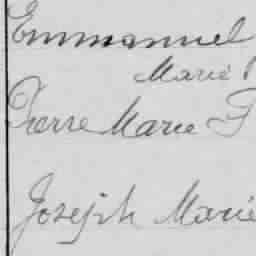 Emmanuel
Marie
Pierre Marie
Joseph Marie